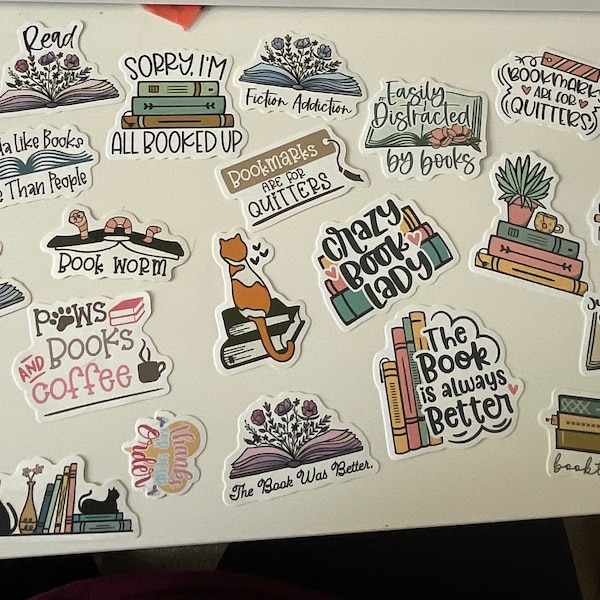 Read
SORRY, I'M
ALL BOOKED UP
Fiction Addiction
Easily
Distracted
by books
BOOKMARKS
ARE FOR
QUITTERS
Like Books
Than People
BOOKMARKS
ARE FOR
QUITTERS
BOOK WORM
CRAZY
BOOK
LADY
PAWS
AND BOOKS
COFFEE
The
Book
is always
Better
thanks
for your
Order
The Book Was Better.